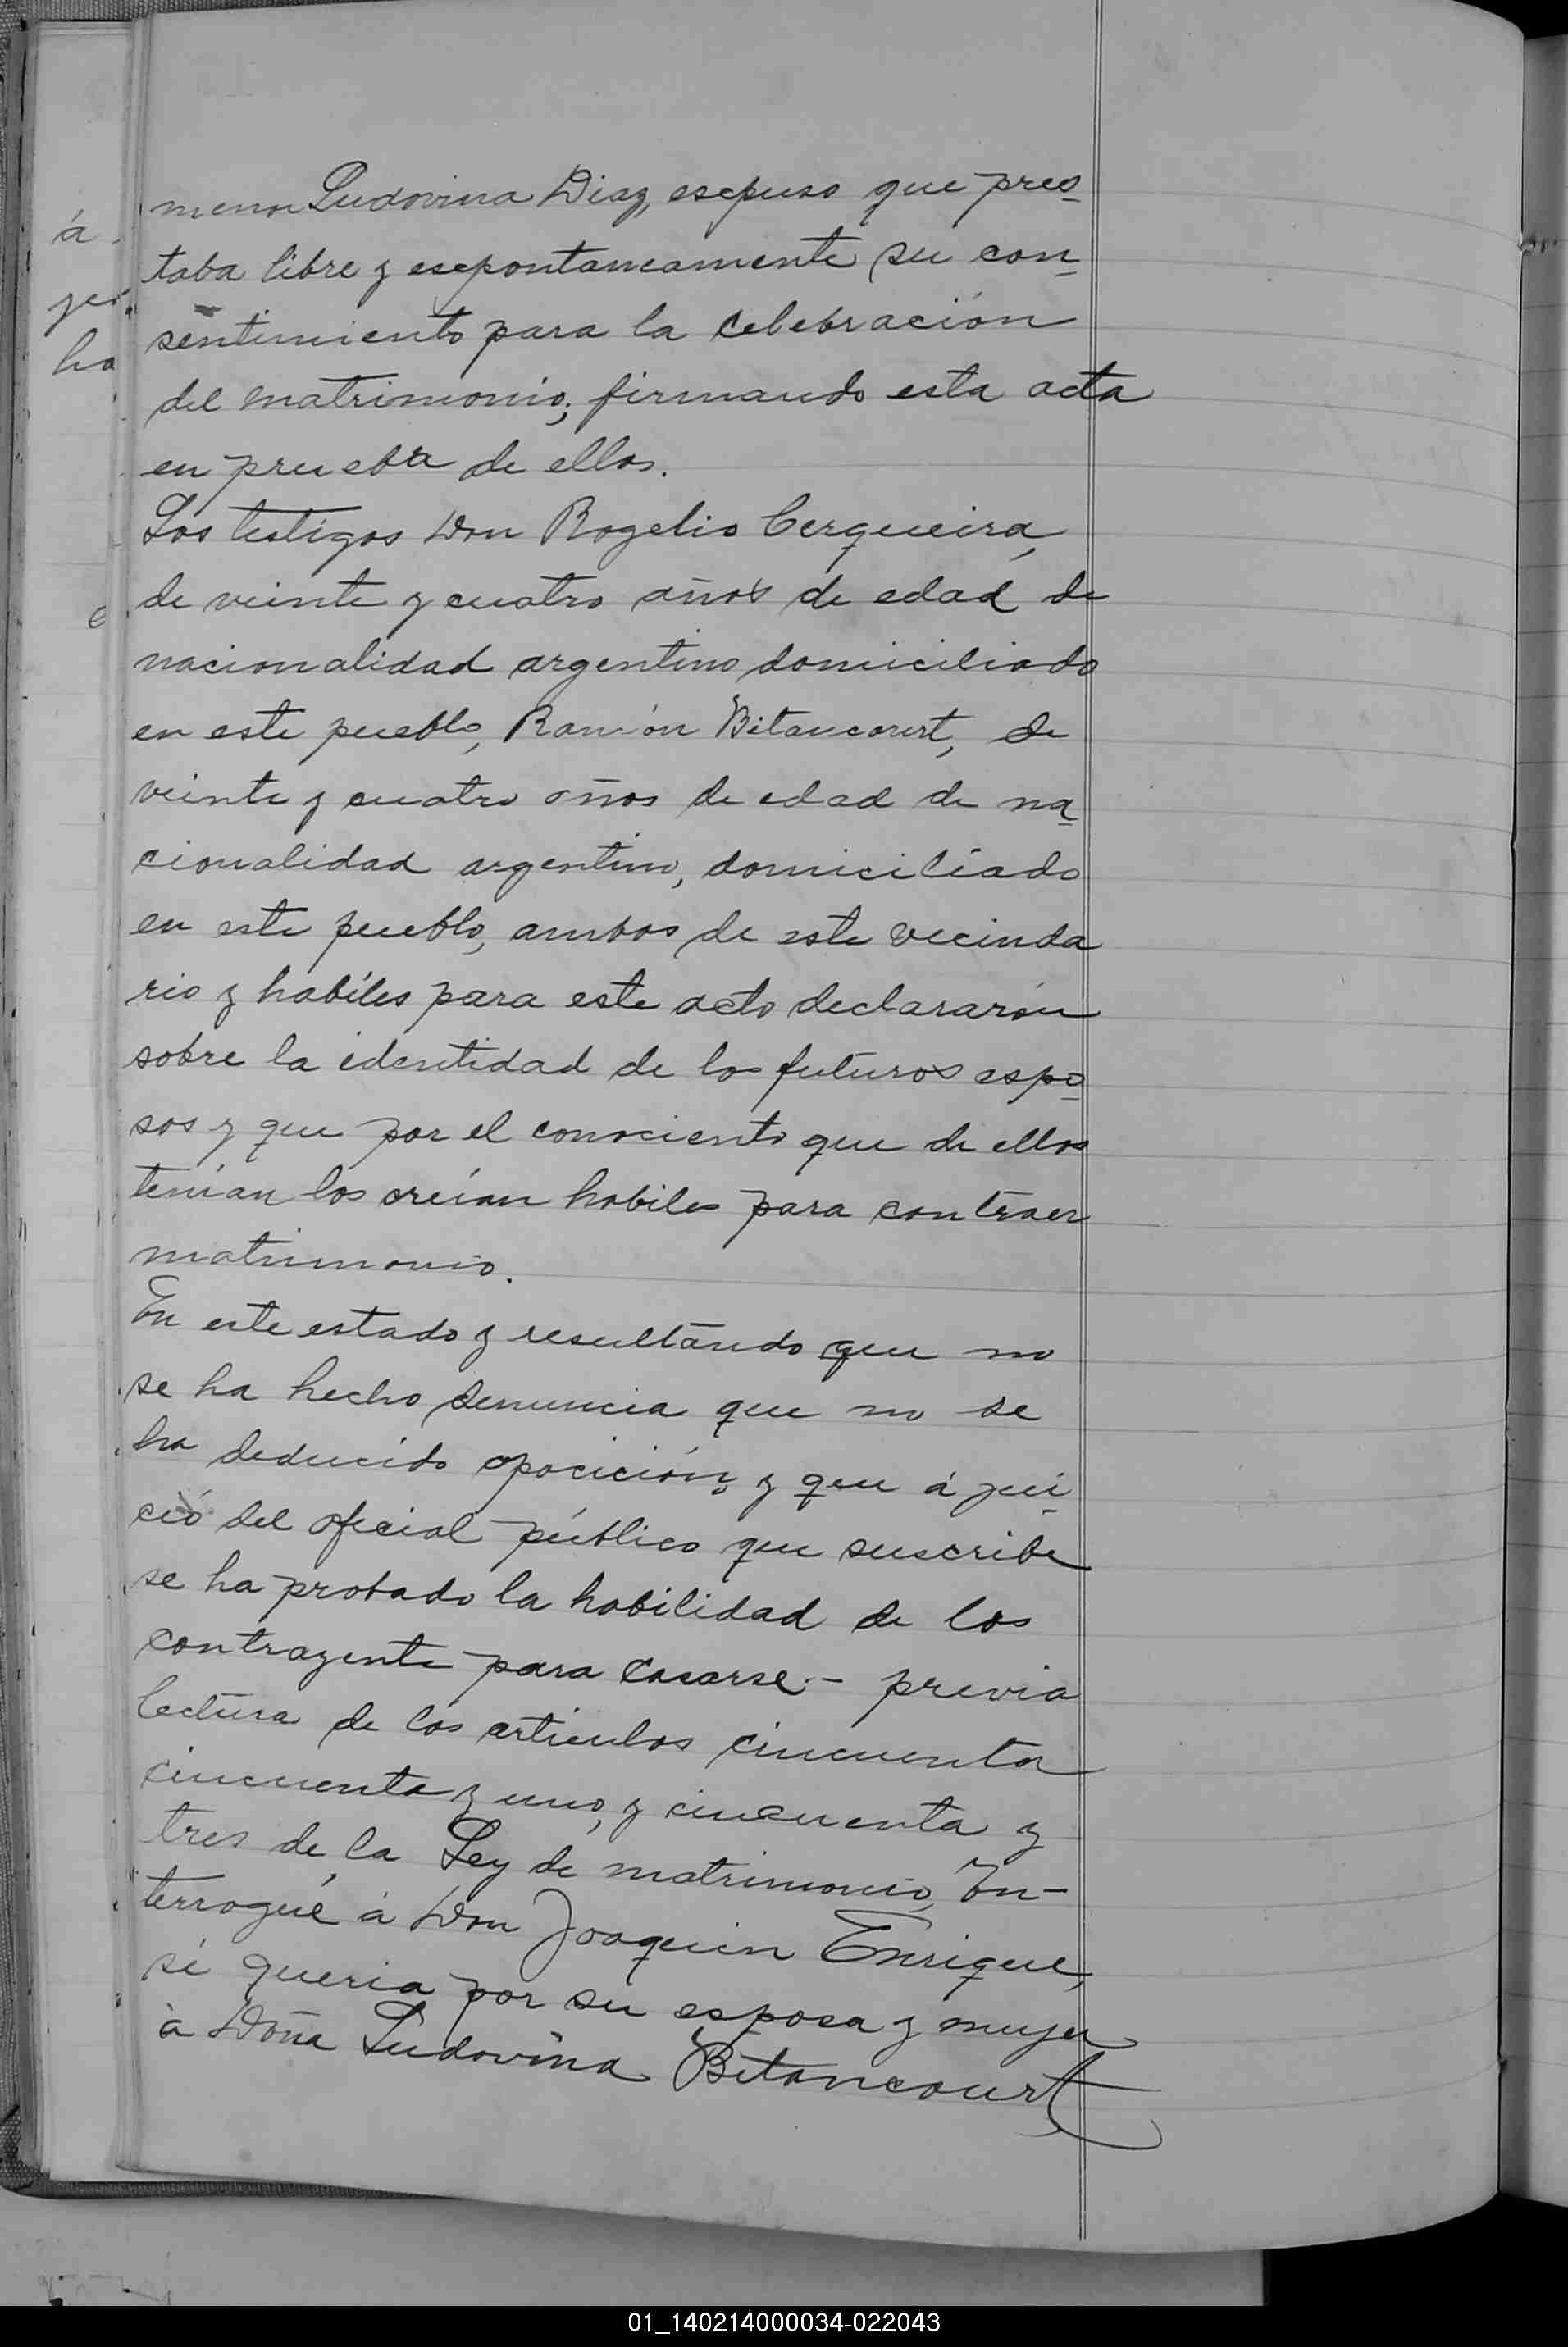 á
jer
ho
e
menor Ludovina Diaz, escpuso que pres-
taba libre y escpontaneamente su con-
sentimiento para la celebración
del matrimonio; firmando esta acta
en prueba de ellos.
Los testigos Don Rogelio Cerqueira,
de veinte y cuatro años de edad de
nacionalidad argentino domiciliado
en este pueblo, Ramón Bitancourt, de
veinte y cuatro años de edad de na-
cionalidad argentino, domiciliado
en este pueblo, ambos de este vecinda
rio y habíles para este acto declararón
sobre la identidad de los futuros espo-
sos y que por el conociento que de ellos
tenían los creían habiles para contraer
matrimonio.
En este estado y resultando que no
se ha hecho denuncia que no se
ha deducido opocición, y que á jui-
ció del oficial público que suscribe
se ha probado la habilidad de los
contrayente para casarse.- previa
lectura de los artículos cincuenta
cincuenta y uno, y cincuenta y
tres de la Ley de matrimonio, In-
terrogué á Don Joaquin Enrique,
si queria por su esposa y mujer
à Doña Ludovina Bitancourt
01_140214000034-022043